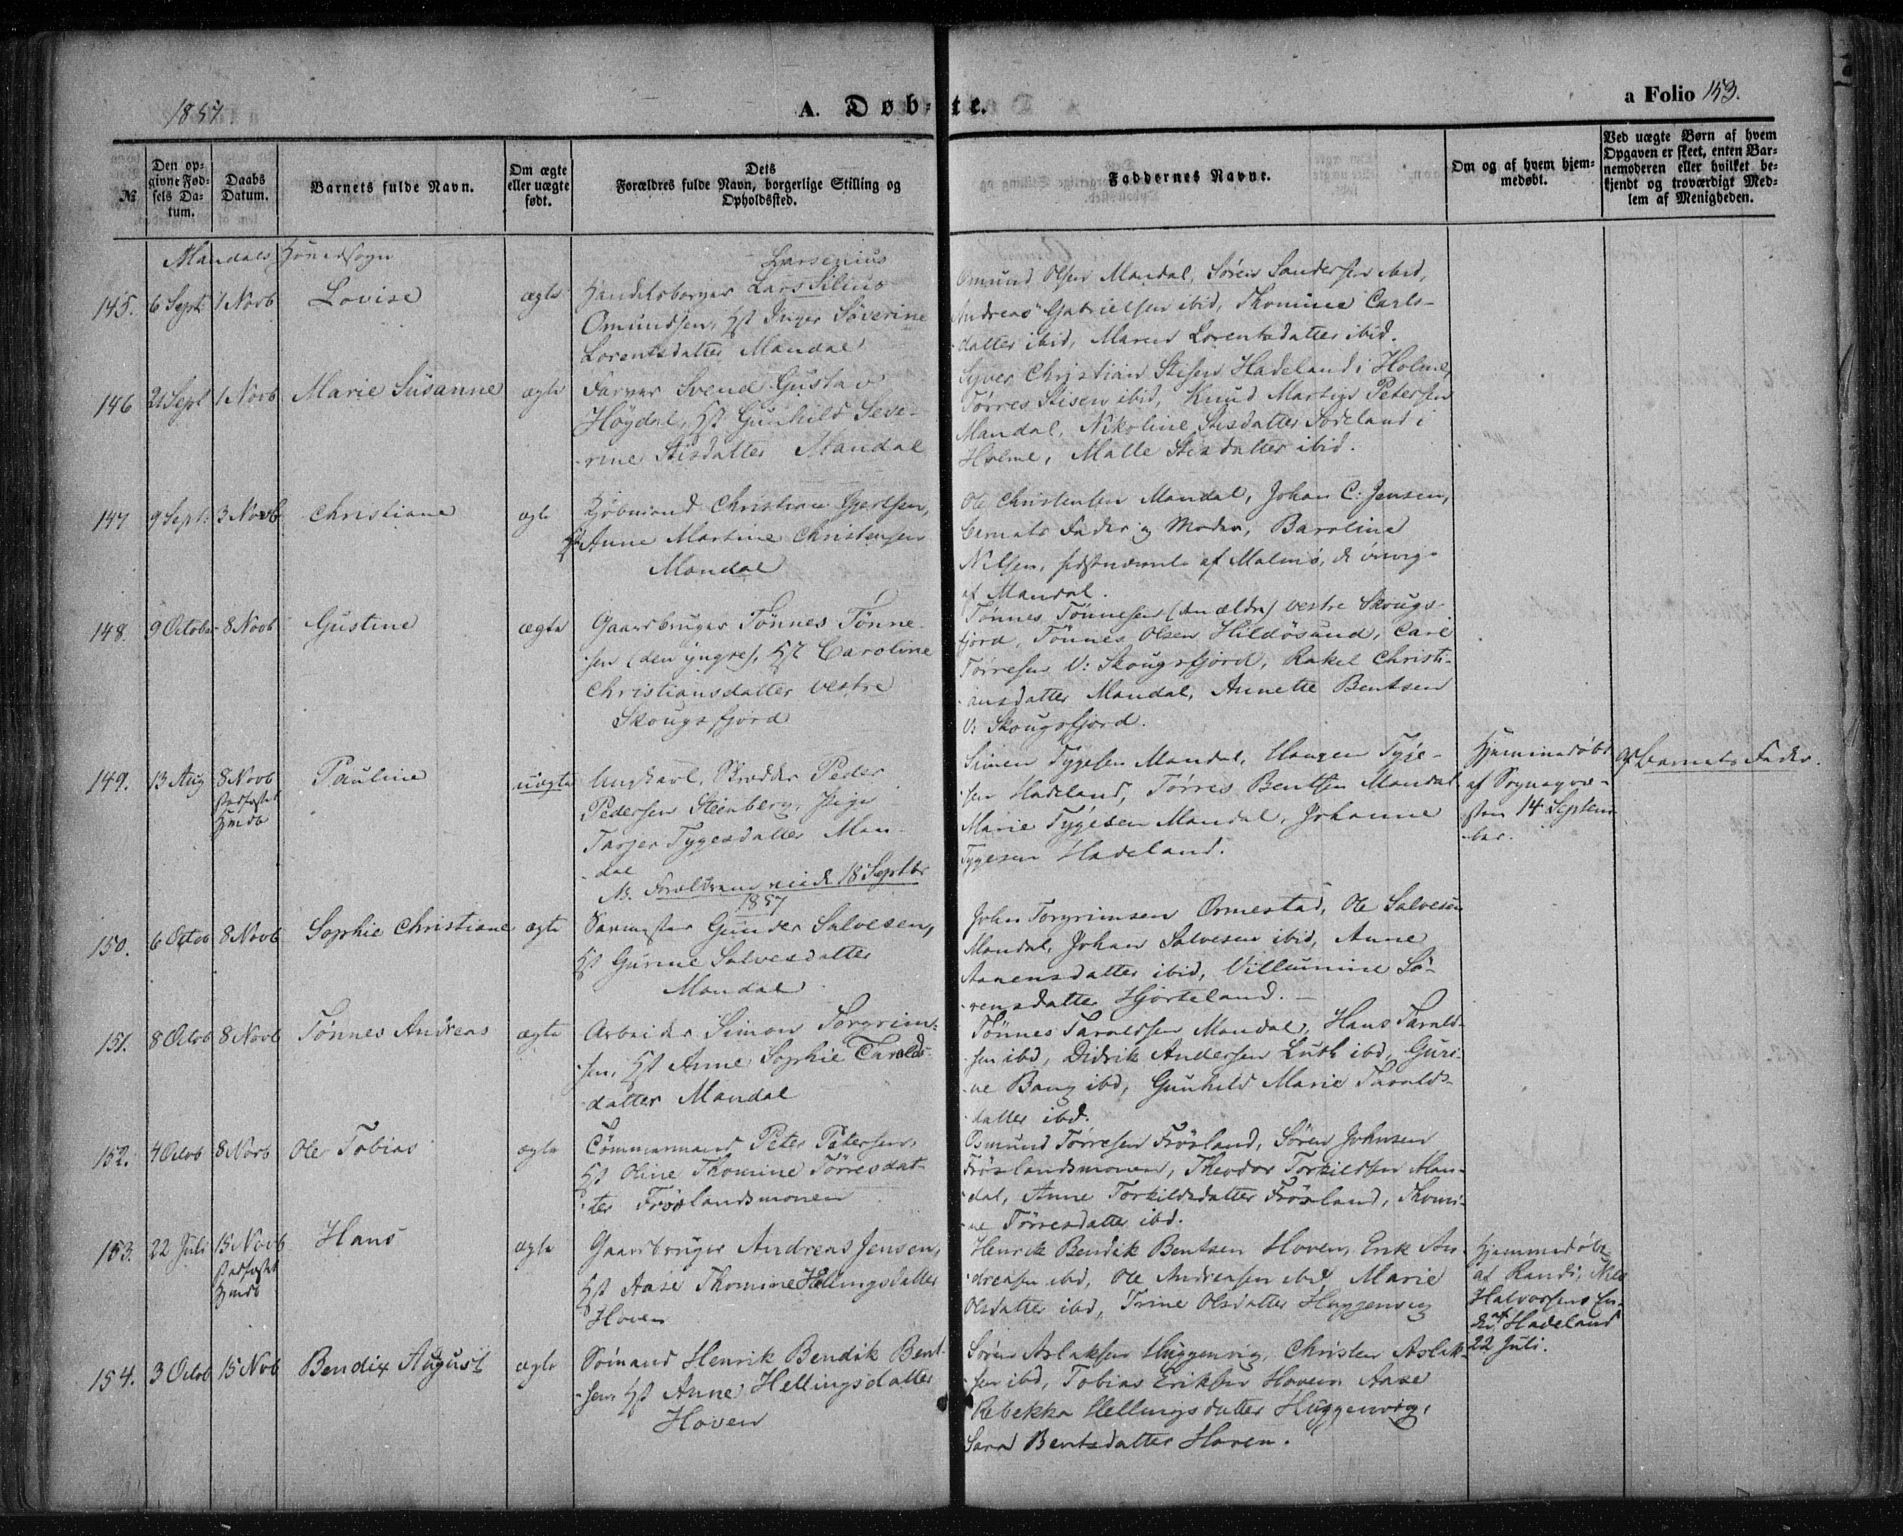 1857.
A. Døbte.
a Folio 153.
№
Den opgivne Fødsels Datum.
Daabs Datum.
Barnets fulde Navn.
Om ægte eller uægte født.
Dets Forældres fulde Navn, borgerlige Stilling og Opholdssted.
Faddernes Navne.
Om og af hvem hjemmedøbt.
Ved uægte Børn af hvem Opgaven er skeet, enten Barnemoderen eller hvilket bekjendt og troværdigt Medlem af Menigheden.
Mandals
145. 6 Sept 1 Novb Lovise ægte
Larsenius
Handelsborger Lars Silius
Omundsen, Hst Inger Severine
Lorentsdatter Mandal
Omund Olsen Mandal, Sören Sandersen ibid,
Andreas Gabrielsen ibid, Thomine Carls-
datter ibid, Maren Lorentsdatter ibid.
146 21 Sept 1 Novb Marie Susanne ægte
Farver Svend Gustav
Höydal, Hst Gunhild Seve-
rine Stisdatter Mandal
Syver Christian Stisen Hadeland i Holme,
Törres Stisen ibid, Knud Martin Petersen
Mandal, Nikoline Stisdatter Södeland i
Holme, Malle Stisdatter ibid.
147 9 Sept: 3 Novb Christiane ægte
Kjöbmand Christian Gjertsen,
Hst Anne Martine Christensen
Mandal
Ole Christensen Mandal, Johan C: Jensen,
Barnets Fader og Moder, Baroline
Nilsen, sidstnævnte af Malmö, de övrige
af Mandal.
148. 9 October 8 Novb Gustine ægte
Gaardbruger Tönnes Tönne-
sen (den yngre), Hst Caroline
Christiansdatter vestre
Skougsfjord
Tönnes Tönnesen (den ældre) vestre Skougs-
fjord, Tönnes Olsen Hildösund, Carl
Törresen V: Skougsfjord, Rakel Christi-
ansdatter Mandal, Annette Bentsen
V: Skougsfjord.
149. 13 Aug 8 Novb stadfæstet Hmdb Pauline uægte
Ungkarl, Peder
Pedersen Steenberg, Pige
Tarjer Tygesdatter Man-
dal
NB. Forældrene viede 18 Septbr
1857
Simen Tygesen Mandal, Haagen Tyge-
sen Hadeland, Törres Bentsen Mandal
Marie Tygesen Mandal, Johanne
Tygesen Hadeland.
Hjemmedöbt
af Sognepræ-
sten 14 Septem-
ber.
Af Barnets Fader.
150. 6 Octob 8 Novb Sophie Christiane ægte
Gunder Salvesen,
Hst Gurine Salvesdatter
Mandal
John Torgrimsen Ormestad, Ole Salvesen
Mandal, Johan Salvesen ibid, Anne
Aanensdatter ibid, Villumine Sö-
rensdatter Hjorteland.
151. 8 Octob 8 Novb Tönnes Andreas ægte
Arbeider Simon Torgrim-
sen, Hst Anne Sophie Taralds-
datter Mandal
Tönnes Taraldsen Mandal, Hans Tarald-
sen ibd, Didrik Andersen Luth ibd, Guri-
ne Bang ibd, Gunhild Marie Taralds-
datter ibd.
152. 4 Octob 8 Novb Ole Tobias ægte
Tömmermand Peter Petersen,
Hst Oline Thomine Törresdat-
ter Fröslandsmonen
Osmund Törresen Frösland, Sören Johnsen
Fröslandsmonen, Theodor Torkildsen Man-
dal, Anne Torkildsdatter Frösland, Thomi-
ne Törresdatter ibd.
153. 22 Juli 15 Novb stadfæstet Hmdb Hans ægte
Gaardbruger Andreas Jensen,
Hst Aase Thomine Hellingsdatter
Hoven
Henrik Bendik Bentsen Hoven, Erik An-
dreasen ibd, Ole Andreasen ibd, Marie
Olsdatter ibd, Trine Olsdatter Huggenvig
Hjemmedöbt
af Randi, Nils
Halvorsens En-
ke af Hadeland
22 Juli.
154. 3 Octob 15 Novb Bendix August ægte
Sömand Henrik Bendik Bent-
sen, Hst Anne Hellingsdatter
Hoven
Sören Aslaksen Huggenvig, Christen Aslak-
sen ibd, Tobias Eriksen Hoven, Aase
Rebekka Hellingsdatter Huggenvig,
Sara Bentsdatter Hoven.